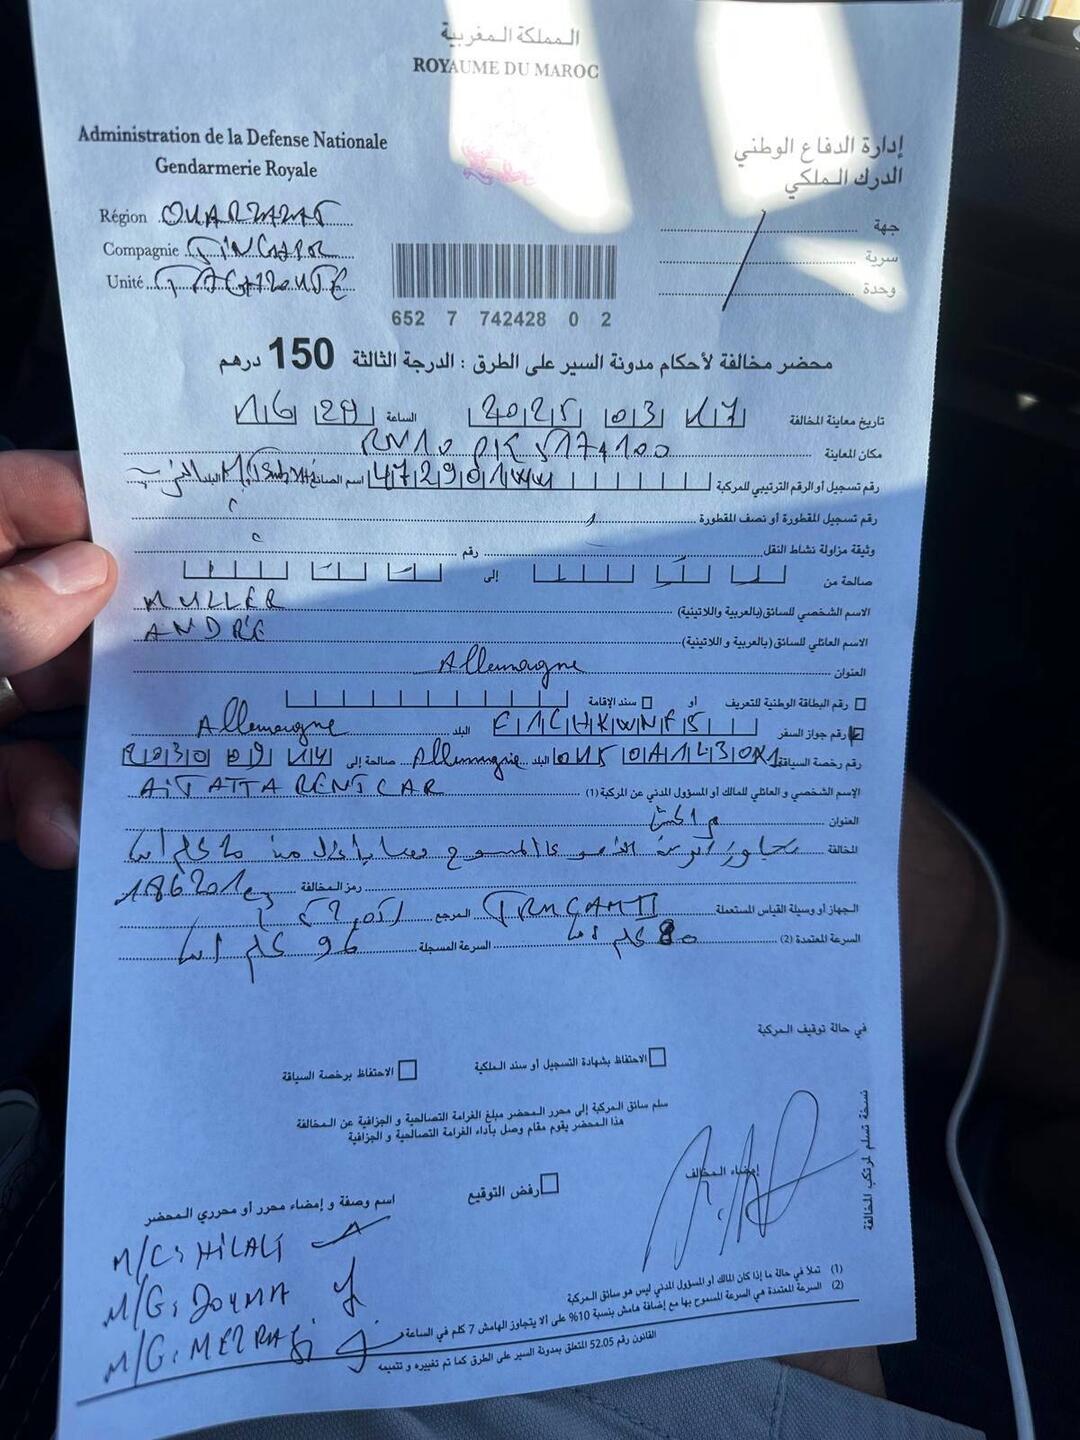 المملكة المغربية
ROYAUME DU MAROC
Administration de la Defense Nationale
Gendarmerie Royale
إدارة الدفاع الوطني
الدرك الملكي
Région OUARZAZAT
Compagnie TINGHIR
Unité TAGHZOUTE
جهة
سرية
وحدة
652 7 742428 0 2
محضر مخالفة لأحكام مدونة السير على الطرق : الدرجة الثالثة 150 درهم
تاريخ معاينة المخالفة 17 03 2025 الساعة 16 29
مكان المعاينة RN10 PK 517+100
رقم تسجيل أو الرقم الترتيبي للمركبة 472901WW اسم الصانع البلد
رقم تسجيل المقطورة أو نصف المقطورة
وثيقة مزاولة نشاط النقل رقم
صالحة من إلى
الاسم الشخصي للسائق (بالعربية واللاتينية) MULLER
الاسم العائلي للسائق (بالعربية و اللاتينية) ANDRÉ
العنوان Allemagne
رقم البطاقة الوطنية للتعريف أو سند الإقامة
رقم جواز السفر C1CHKWNF5 البلد Allemagne
رقم رخصة السياقة البلد Allemagne صالحة إلى 14 09 2030
الإسم الشخصي و العائلي للمالك أو المسؤول المدني عن المركبة (1) AIT ATTA RENT CAR
العنوان
المخالفة
رمز المخالفة
الجهاز أو وسيلة القياس المستعملة TRUCAM II المرجع
السرعة المعتمدة (2) 80 كلم السرعة المسجلة 96 كلم
في حالة توقيف المركبة
الاحتفاظ بشهادة التسجيل أو سند الملكية
الاحتفاظ برخصة السياقة
سلم سائق المركبة إلى محرر المحضر مبلغ الغرامة التصالحية و الجزافية عن المخالفة
هذا المحضر يقوم مقام وصل بأداء الغرامة التصالحية و الجزافية
نسخة تسلم لمرتكب المخالفة
إمضاء المخالف
رفض التوقيع
اسم وصفة و إمضاء محرر أو محرري المحضر
M/C: HILALI
M/G: DOUMA
M/G: MEZRAGI
(1) تملأ في حالة ما إذا كان المالك أو المسؤول المدني ليس هو سائق المركبة
(2) السرعة المعتمدة هي السرعة المسموح بها مع إضافة هامش بنسبة 10% على ألا يتجاوز الهامش 7 كلم في الساعة
القانون رقم 52.05 المتعلق بمدونة السير على الطرق كما تم تغييره و تتميمه